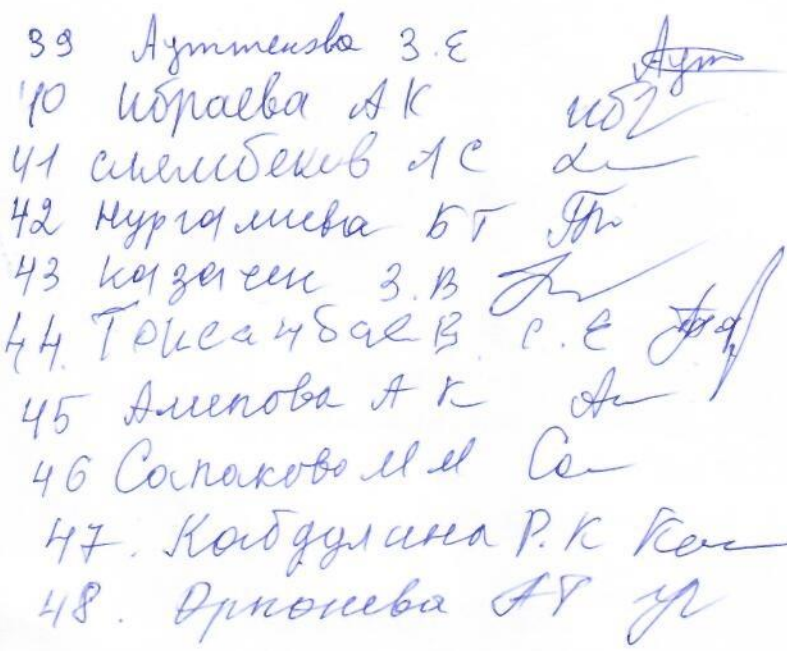 39 Ауттенова З.Е Аут
40 Ибраева А К Иб
41 Слямбеков А С
42 Нургалиева Б Т
43 Казачек З.В
44. Токсанбаев. С.Е
45 Алипова А К
46 Сапакова М М Са
47. Кабдулина Р.К Каб
48. А Т